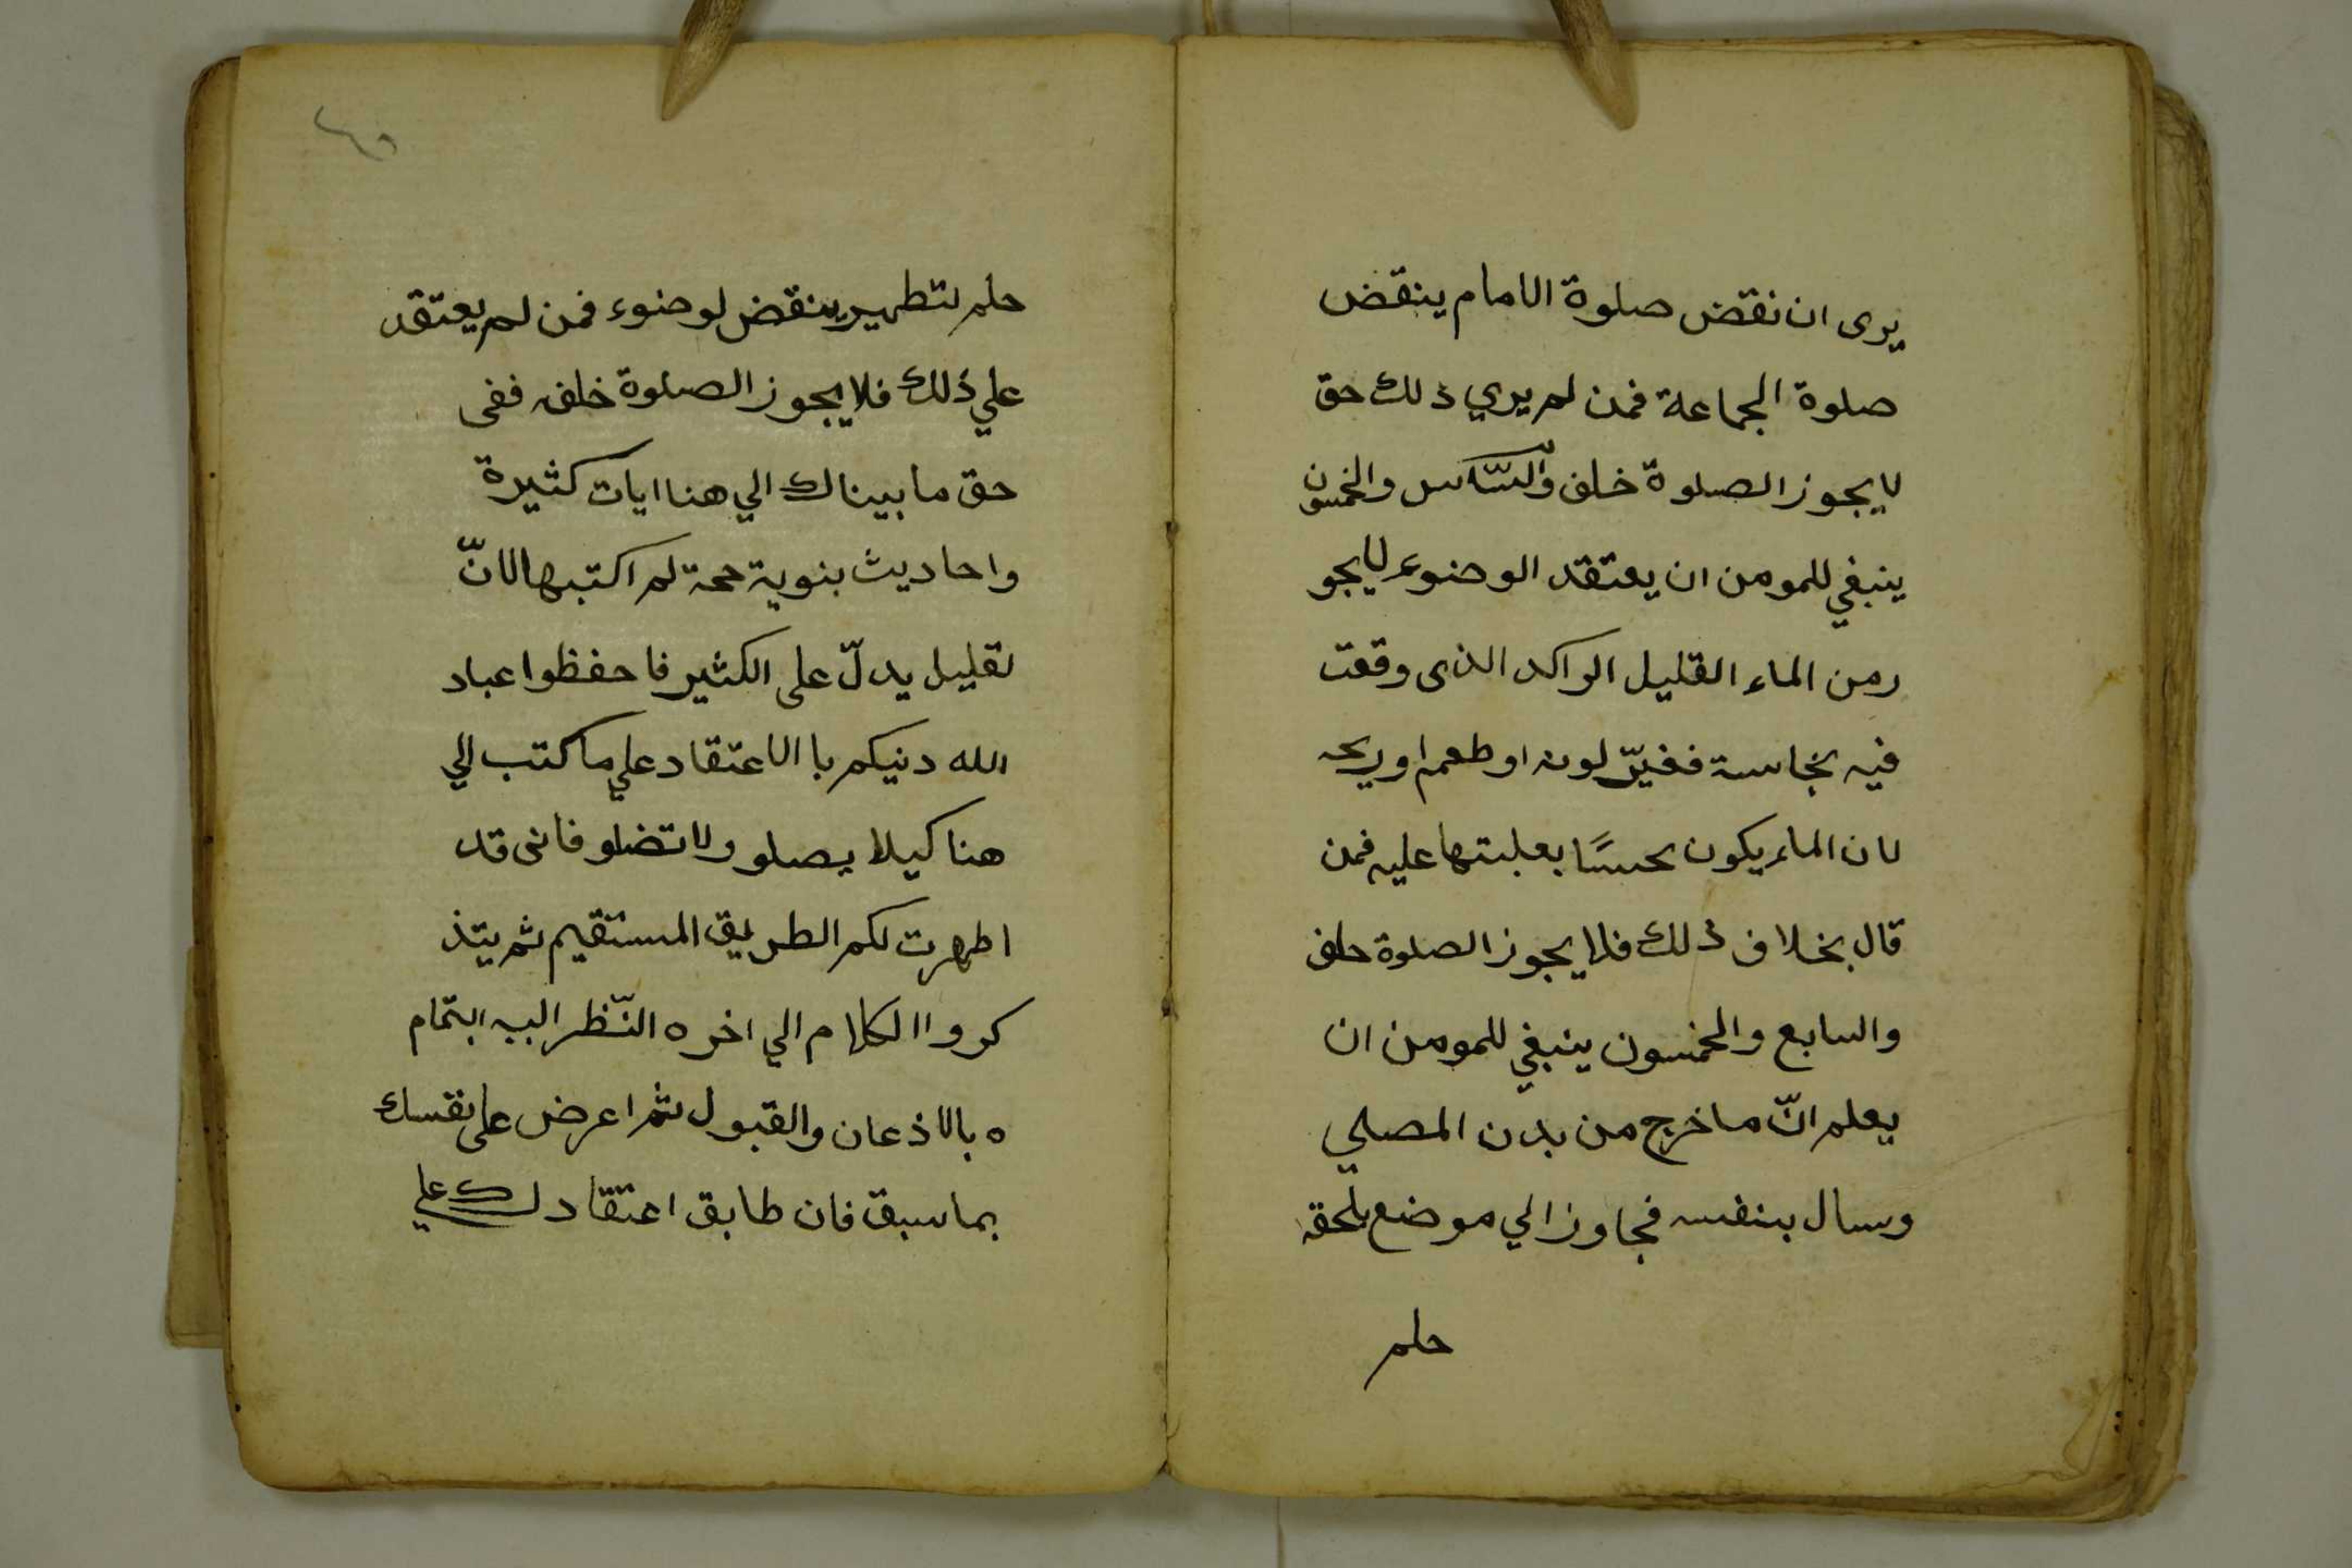 يرى ان نقض صلوة الامام ينقض
صلوة الجماعة فمن لم يري ذلك حق
لا يجوز الصلوة خلف والسّادس والخمسون
ينبغي للمومن ان يعتقد الوضوء لا يجو
ز من الماء القليل الراكد الذى وقعت
فيه نجاسة فغيّر لونه او طعمه او ريحه
لان الماء يكون نجسًا بغلبتها عليه فمن
قال بخلاف ذلك فلا يجوز الصلوة خلف
والسابع والخمسون ينبغي للمومن ان
يعلم انّ ما خرج من بدن المصلي
وسال بنفسه فجاوز الي موضع يلحقه
حلم
حلم لتطهير ينقض لوضوء فمن لم يعتقد
علي ذلك فلا يجوز الصلوة خلفه ففى
حق ما بيناك الي هنا ايات كثيرة
واحاديث بنوية لم اكتبها لانّ
لقليل يدلّ على الكثير فاحفظوا عباد
الله دنيكم با الاعتقاد علي ما كتب الي
هنا كيلا يصلو ولا تضلو فانى قد
اظهرت لكم الطريق المستقيم ثم يتذ
كروا الكلام الي اخره النّظر اليه ابتمام
ه بالاذعان والقبول ثم اعرض على نفسك
بما سبق فان طابق اعتقادك علي